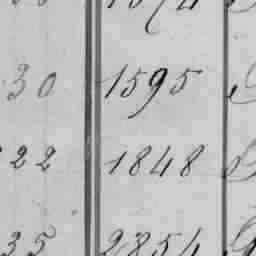 30 1595
22 1848
35 2854